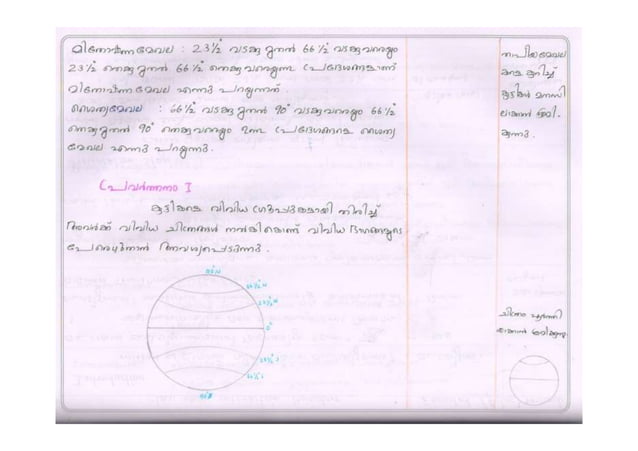 മിതോഷ്ണമേഖല : 23½° വടക്കു മുതൽ 66½° വടക്കുവരെയും
23½° തെക്കു മുതൽ 66½° തെക്കുവരെയുമുള്ള പ്രദേശങ്ങളാണ്
മിതോഷ്ണമേഖല എന്നു പറയുന്നത്.
ശൈത്യമേഖല : 66½° വടക്കു മുതൽ 90° വടക്കുവരെയും 66½°
തെക്കു മുതൽ 90° തെക്കുവരെയും ഉള്ള പ്രദേശങ്ങളെ ശൈത്യ
മേഖല എന്നു പറയുന്നു.
പ്രവർത്തനം I
കുട്ടികളെ വിവിധ ഗ്രൂപ്പുകളായി തിരിച്ച്
അവർക്ക് വിവിധ ചിത്രങ്ങൾ നൽകികൊണ്ട് വിവിധ ഭാഗങ്ങളുടെ
പേരെഴുതുവാൻ ആവശ്യപ്പെടുന്നു.
90°N
66½°N
23½°N
0°
23½°S
66½°S
90°S
താപീയമേഖല
കളെ കുറിച്ച്
കുട്ടികൾ മനസി
ലാക്കാൻ ശ്രമി-
ക്കുന്നു.
ചിത്രം പൂർത്തി
യാക്കാൻ ശ്രമിക്കുന്നു